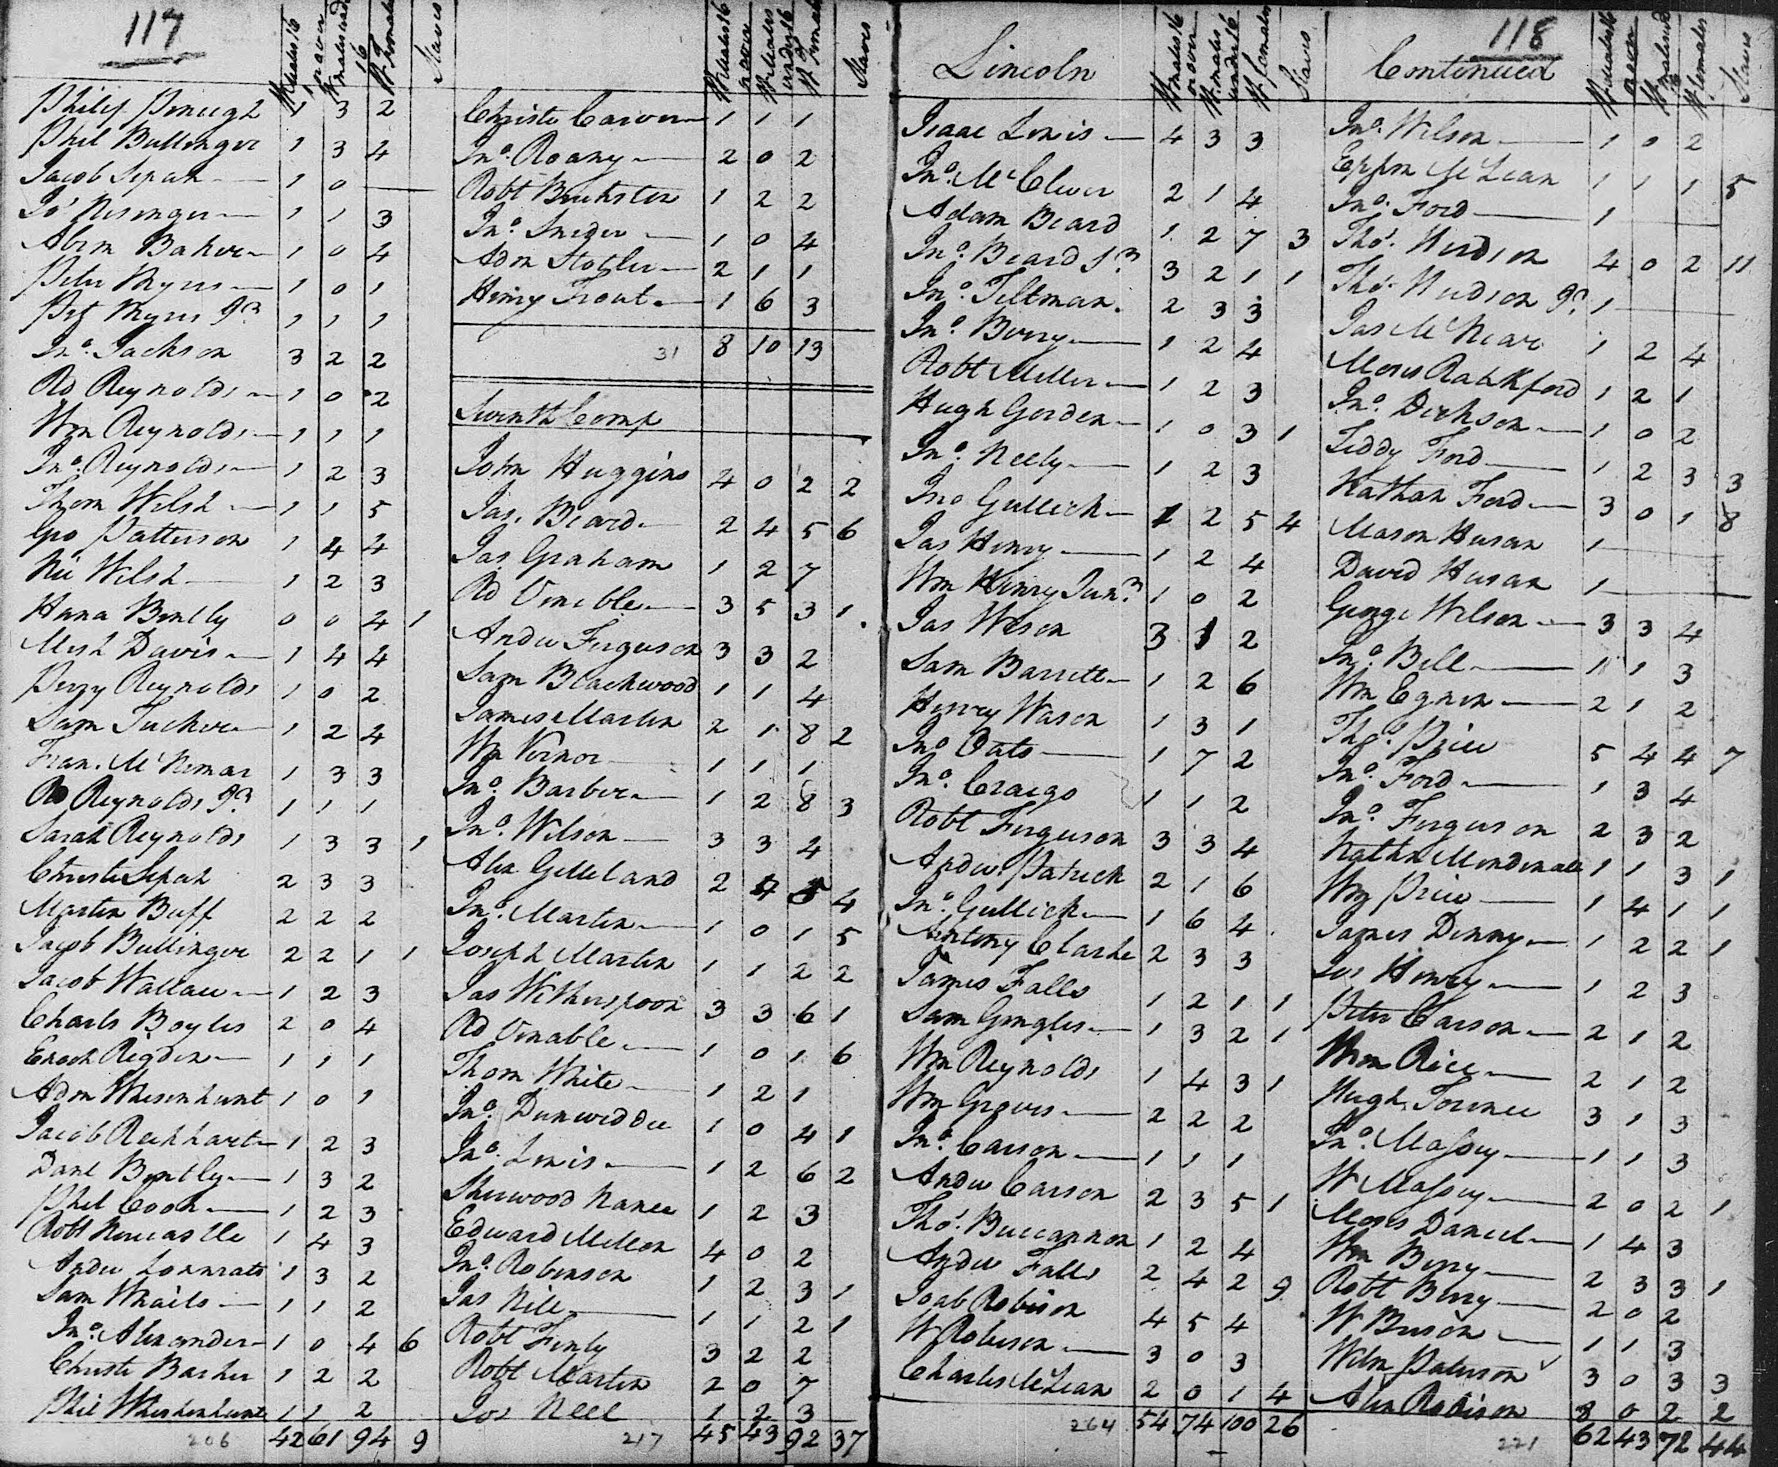 117
W males 16 & over W males under 16 W Females Slaves
Philip
Phil Bullinger 1 3 4
Jacob Sepah 1 0
1 1 3
Abrm Baker 1 0 4
Peter Myers 1 0 1
Pet Myers Jr 1 1 1
Jno. Jackson 3 2 2
Rd Reynolds 1 0 2
Wm Reynolds 1 1 1
Jno. Reynolds 1 2 3
Thom Wilsh 1 1 5
Geo Patterson 1 4 4
Nic Wilsh 1 2 3
Hana Bently 0 0 4 1
Mesh Davis 1 4 4
Pegy Reynolds 1 0 2
Sam Tucker 1 2 4
Fran. McNemar 1 3 3
Rd Reynolds Jr 1 1 1
Sarah Reynolds 1 3 3 1
Christe Sepah 2 3 3
Martin Buff 2 2 2
Jacob Bullinger 2 2 1 1
Jacob Wallace 1 2 3
Charls Boyles 2 0 4
Enoch Rigden 1 1 1
Adm Whisenhunt 1 0 1
Jacob Reckhart 1 2 3
Danl Bently 1 3 2
Phil Cook 1 2 3
Robt Newcastle 1 4 3
Andw 1 3 2
Sam 1 1 2
Jno. Alexander 1 0 4 6
Christe Barker 1 2 2
Phil 1 1 2
206 42 61 94 9
W males 16 & over W Males under 16 W Females Slaves
Christe Carver 1 1 1
Jno. Roany 2 0 2
Robt 1 2 2
Jno. Snider 1 0 4
Adm Stotler 2 1 1
Henry Trout 1 6 3
31 8 10 13
Seventh Comp
John Huggins 4 0 2 2
Jas. Beard 2 4 5 6
Jas Graham 1 2 7
Rd Venible 3 5 3 1
Andw Ferguson 3 3 2
Sam Blackwood 1 1 4
James Martin 2 1 8 2
Wm Vernor 1 1 1
Jno. Barber 1 2 8 3
Jno. Wilson 3 3 4
Alex Gilleland 2
Jno. Martin 1 0 1 5
Joseph Martin 1 1 2 2
Jas Witherspoon 3 3 6 1
Rd Venable 1 0 1 6
Thom White 1 2 1
Jno. Dunwiddee 1 0 4 1
Jno. Lewis 1 2 6 2
Sherwood Nance 1 2 3
Edward Melton 4 0 2
Jno. Robinson 1 2 3 1
Jas Nile 1 1 2 1
Robt Finly 3 2 2
Robt Martin 2 0 7
Jos Neel 1 2 3
217 45 43 92 37
Lincoln
W males 16 & over W males under 16 W females Slaves
Isaac Lewis 4 3 3
Jno. McClure 2 1 4
Adam Beard 1 2 7 3
Jno. Beard Sr 3 2 1 1
Jno. Tiltman 2 3 3
Jno. Berry 1 2 4
Robt Miller 1 2 3
Hugh Gorden 1 0 3 1
Jno. Neely 1 2 3
Jno Gullick 1 2 5 4
Jas Henry 1 2 4
Wm Henry Junr 1 0 2
Jas Wason 3 1 2
Sam Barrett 1 2 6
Henry Wason 1 3 1
Jno. Oats 1 7 2
Jno. Craigo 1 1 2
Robt Ferguson 3 3 4
Andw. Patrick 2 1 6
Jno. Gullick 1 6 4
Antony Clarke 2 3 3
James Falls 1 2 1 1
Sam Gingles 1 3 2 1
Wm Reynolds 1 4 3 1
Wm Groves 2 2 2
Jno. Carson 1 1 1
Andw Carson 2 3 5 1
Thos. Buccannon 1 2 4
Andw Falls 2 4 2 9
Joab Robison 4 5 4
W Robison 3 0 3
Charles McLean 2 0 1 4
264 54 74 100 26
118
Continued
W males 16 & over W males under 16 W females Slaves
Jno. Wilson 1 0 2
Ephm McLean 1 1 1 5
Jno. Ford 1
Thos. Hudson 4 0 2 11
Thos. Hudson Jr. 1
Jas McNeare 1 2 4
Moses Ratchford 1 2 1
Jno. Dickson 1 0 2
Teddy Ford 1 2 3 3
Nathan Ford 3 0 1 8
Mason Husan 1
David Husan 1
George Wilson 3 3 4
Jno. Bell 1 1 3
Wm Egnew 2 1 2
Thos. Price 5 4 4 7
Jno. Ford 1 3 4
Jno. Ferguson 2 3 2
Nathn Mendenall 1 1 3 1
Wm Price 1 4 1 1
James Denny 1 2 2 1
Jos Henry 1 2 3
Peter Carson 2 1 2
Wm Rice 2 1 2
Hugh Torence 3 1 3
Jno. Massey 1 1 3
W Massey 2 0 2 1
Moses Daniel 1 4 3
Wm Berry 2 3 3 1
Robt Berry 2 0 2
W Berson 1 1 3
Wilm Paterson 3 0 3 3
Alex Robison 8 0 2 2
221 62 43 72 44